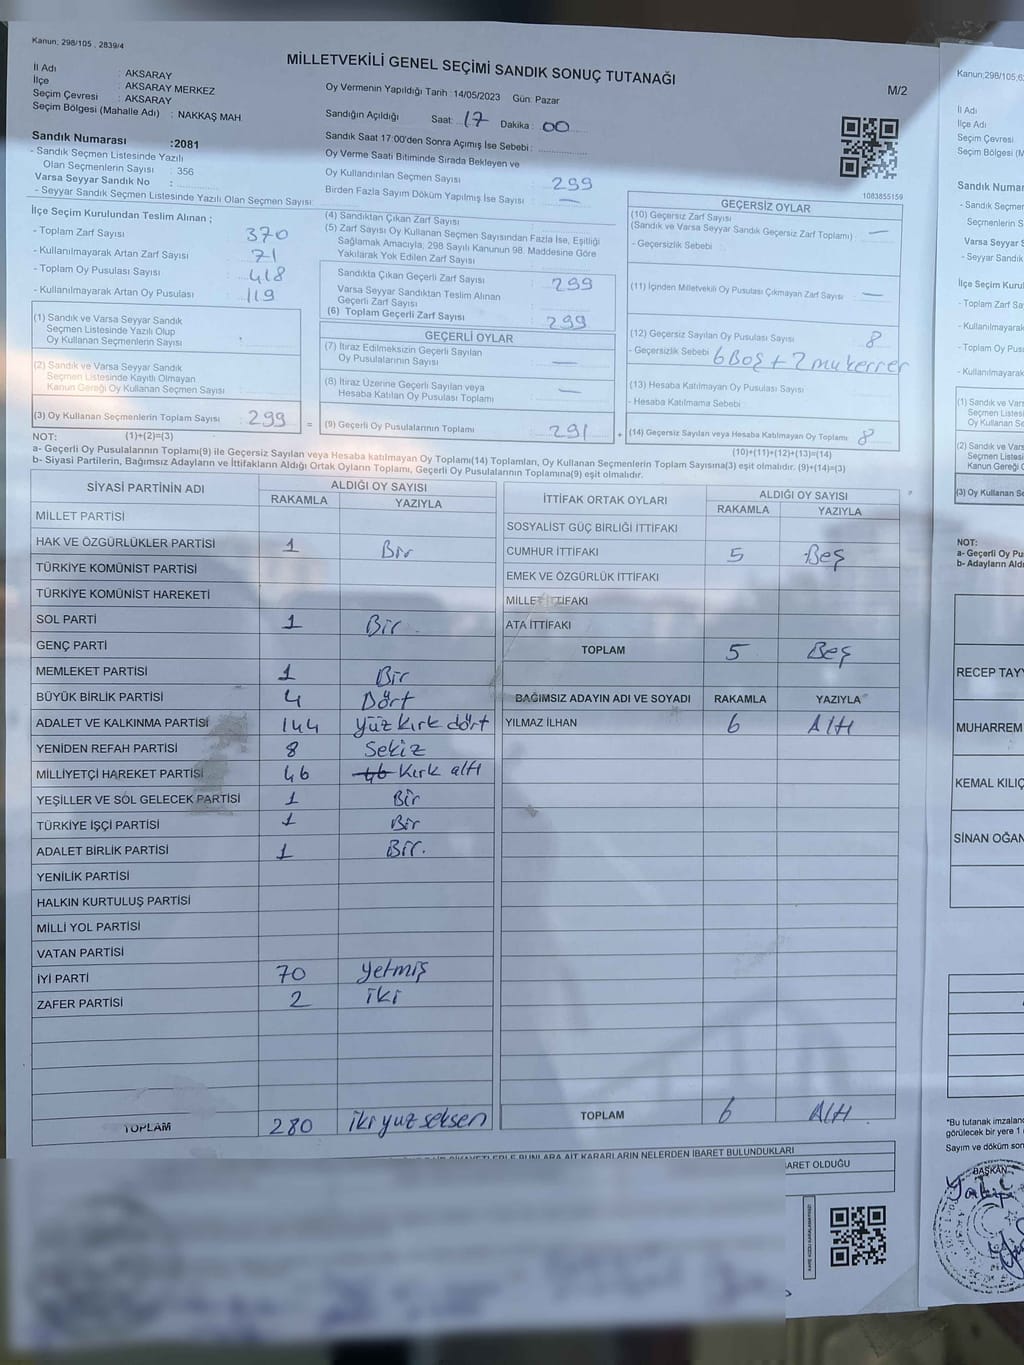 Kanun. 298/105 , 2839/4
MİLLETVEKİLİ GENEL SEÇİMİ SANDIK SONUÇ TUTANAĞI
M/2
İl Adı : AKSARAY
İlçe : AKSARAY MERKEZ
Seçim Çevresi : AKSARAY
Seçim Bölgesi (Mahalle Adı) : NAKKAŞ MAH.
Sandık Numarası :2081
- Sandık Seçmen Listesinde Yazılı
Olan Seçmenlerin Sayısı : 356
Varsa Seyyar Sandık No :
- Seyyar Sandık Seçmen Listesinde Yazılı Olan Seçmen Sayısı:
Oy Vermenin Yapıldığı Tarih :14/05/2023 Gün: Pazar
Sandığın Açıldığı Saat: 17 Dakika : 00
Sandık Saat 17:00'den Sonra Açımış İse Sebebi :
Oy Verme Saati Bitiminde Sırada Bekleyen ve
Oy Kullandırılan Seçmen Sayısı : 299
Birden Fazla Sayım Döküm Yapılmış İse Sayısı : —
1083855159
İlçe Seçim Kurulundan Teslim Alınan ;
- Toplam Zarf Sayısı : 370
- Kullanılmayarak Artan Zarf Sayısı : 71
- Toplam Oy Pusulası Sayısı : 418
- Kullanılmayarak Artan Oy Pusulası : 119
(1) Sandık ve Varsa Seyyar Sandık
Seçmen Listesinde Yazılı Olup
Oy Kullanan Seçmenlerin Sayısı :
(2) Sandık ve Varsa Seyyar Sandık
Seçmen Listesinde Kayıtlı Olmayan
Kanun Gereği Oy Kullanan Seçmen Sayısı :
(3) Oy Kullanan Seçmenlerin Toplam Sayısı : 299 =
(4) Sandıktan Çıkan Zarf Sayısı :
(5) Zarf Sayısı Oy Kullanan Seçmen Sayısından Fazla İse, Eşitliği
Sağlamak Amacıyla, 298 Sayılı Kanunun 98. Maddesine Göre
Yakılarak Yok Edilen Zarf Sayısı :
Sandıkta Çıkan Geçerli Zarf Sayısı : 299
Varsa Seyyar Sandıktan Teslim Alınan
Geçerli Zarf Sayısı :
(6) Toplam Geçerli Zarf Sayısı : 299
GEÇERLİ OYLAR
(7) İtiraz Edilmeksizin Geçerli Sayılan
Oy Pusulalarının Sayısı : —
(8) İtiraz Üzerine Geçerli Sayılan veya
Hesaba Katılan Oy Pusulası Toplamı : —
(9) Geçerli Oy Pusulalarının Toplamı : 291 +
GEÇERSİZ OYLAR
(10) Geçersiz Zarf Sayısı
(Sandık ve Varsa Seyyar Sandık Geçersiz Zarf Toplamı) : —
- Geçersizlik Sebebi :
(11) İçinden Milletvekili Oy Pusulası Çıkmayan Zarf Sayısı : —
(12) Geçersiz Sayılan Oy Pusulası Sayısı : 8
- Geçersizlik Sebebi : 6 Boş + 2 mukerrer
(13) Hesaba Katılmayan Oy Pusulası Sayısı :
- Hesaba Katılmama Sebebi :
(14) Geçersiz Sayılan veya Hesaba Katılmayan Oy Toplamı : 8
NOT: (1)+(2)=(3) (10)+(11)+(12)+(13)=(14)
a- Geçerli Oy Pusulalarının Toplamı(9) ile Geçersiz Sayılan veya Hesaba katılmayan Oy Toplamı(14) Toplamları, Oy Kullanan Seçmenlerin Toplam Sayısına(3) eşit olmalıdır. (9)+(14)=(3)
b- Siyasi Partilerin, Bağımsız Adayların ve İttifakların Aldığı Ortak Oyların Toplamı, Geçerli Oy Pusulalarının Toplamına(9) eşit olmalıdır.
SİYASİ PARTİNİN ADI ALDIĞI OY SAYISI
RAKAMLA YAZIYLA
MİLLET PARTİSİ
HAK VE ÖZGÜRLÜKLER PARTİSİ 1 Bir
TÜRKİYE KOMÜNİST PARTİSİ
TÜRKİYE KOMÜNİST HAREKETİ
SOL PARTİ 1 Bir
GENÇ PARTİ
MEMLEKET PARTİSİ 1 Bir
BÜYÜK BİRLİK PARTİSİ 4 Dört
ADALET VE KALKINMA PARTİSİ 144 yüz kırk dört
YENİDEN REFAH PARTİSİ 8 Sekiz
MİLLİYETÇİ HAREKET PARTİSİ 46 46 Kırk altı
YEŞİLLER VE SOL GELECEK PARTİSİ 1 Bir
TÜRKİYE İŞÇİ PARTİSİ 1 Bir
ADALET BİRLİK PARTİSİ 1 Bir.
YENİLİK PARTİSİ
HALKIN KURTULUŞ PARTİSİ
MİLLİ YOL PARTİSİ
VATAN PARTİSİ
İYİ PARTİ 70 yetmiş
ZAFER PARTİSİ 2 iki
TOPLAM 280 ikiyuz seksen
İTTİFAK ORTAK OYLARI ALDIĞI OY SAYISI
RAKAMLA YAZIYLA
SOSYALİST GÜÇ BİRLİĞİ İTTİFAKI
CUMHUR İTTİFAKI 5 Beş
EMEK VE ÖZGÜRLÜK İTTİFAKI
MİLLET İTTİFAKI
ATA İTTİFAKI
TOPLAM 5 Beş
BAĞIMSIZ ADAYIN ADI VE SOYADI RAKAMLA YAZIYLA
YILMAZ İLHAN 6 Altı
TOPLAM 6 Altı
BUNLARA AİT KARARLARIN NELERDEN İBARET BULUNDUKLARI
ARET OLDUĞU
Kanun:298/105,6
İl Adı
İlçe Adı
Seçim Çevresi
Seçim Bölgesi (M
Sandık Numar
- Sandık Seçmer
Seçmenlerin S
Varsa Seyyar S
- Seyyar Sandık
İlçe Seçim Kurul
- Toplam Zarf Sa
- Kullanılmayarak
- Toplam Oy Pusu
- Kullanılmayarak
(1) Sandık ve Varsa
Seçmen Listesi
Oy Kullanan Se
(2) Sandık ve Varsa
Seçmen Listes
Kanun Gereği O
(3) Oy Kullanan Se
NOT:
a- Geçerli Oy Pusu
b- Adayların Aldı
RECEP TAYY
MUHARREM
KEMAL KILIÇ
SİNAN OĞAN
*Bu tutanak imzalanc
görülecek bir yere 1
Sayım ve döküm son
BAŞKAN